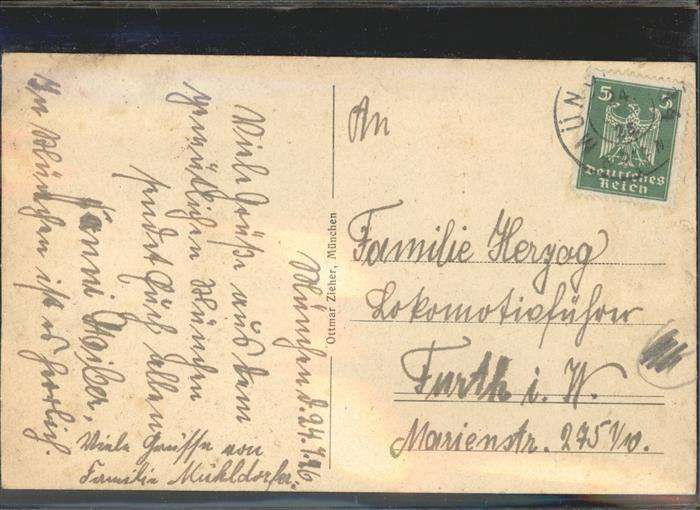 München d. 24.7.26
Viele Grüße aus dem
gemütlichen München
sendet Euch allen
Fanni Weiler,
In München ist es herrlich.
Viele Grüsse von
Familie Mühldorfer.
Ottmar Zieher, München
An
Familie Herzog
Lokomotivführer
Furth i. W.
Marienstr. 275 1/10.
MÜN
5 5
Deutsches
Reich